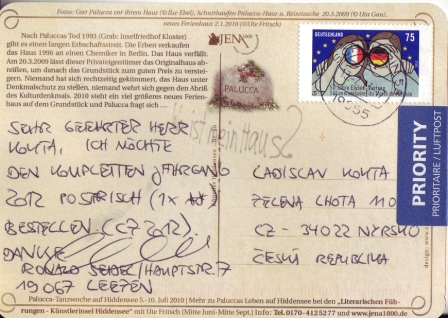 Fotos: Gret Palucca vor ihrem Haus (© Ilse Ebel), Schutthaufen Palucca-Haus u. Reisetasche 20.3.2009 (© Uta Gau),
neues Ferienhaus 2.1.2010 (© Ute Fritsch)
Nach Paluccas Tod 1993 (Grab: Inselfriedhof Kloster)
gibt es einen langen Erbschaftsstreit. Die Erben verkaufen
das Haus 1996 an einen Chemiker in Berlin. Das Haus verfällt.
Am 20.3.2009 lässt dieser Privateigentümer das Originalhaus ab-
reißen, um danach das Grundstück zum guten Preis zu verstei-
gern. Niemand hat sich rechtzeitig gekümmert, das Haus unter
Denkmalschutz zu stellen, niemand wehrt sich gegen den Abriß
des Kulturdenkmals. 2010 steht ein viel größeres neues Ferien-
haus auf dem Grundstück und Palucca fragt sich ...
JENA 1800
PALUCCA
Wo ist mein Haus?
DEUTSCHLAND
75
19055
PRIORITY
PRIORITAIRE / LUFTPOST
SEHR GEEHRTER HERR
KOKTA, ICH MÖCHTE
DEN KOMPLETTEN JAHRGANG
2012 POSTFRISCH (1x
BESTELLEN (CZ 2012).
DANKE
RONALD SEIDEL/HAUPTSTR. 7
19067 LEEZEN
LADISLAV KOKTA
ZELENA LHOTA 110
CZ - 34022 NYRSKO
ČESKÁ REPUBLIKA
Palucca-Tanzwoche auf Hiddensee 5.-10. Juli 2010 | Mehr zu Paluccas Leben auf Hiddensee bei den „Literarischen Füh-
rungen - Künstlerinsel Hiddensee" mit Ute Fritsch (Mitte Juni-Mitte Sept.) | Info: Tel.0170-4125277 und www.jena1800.de